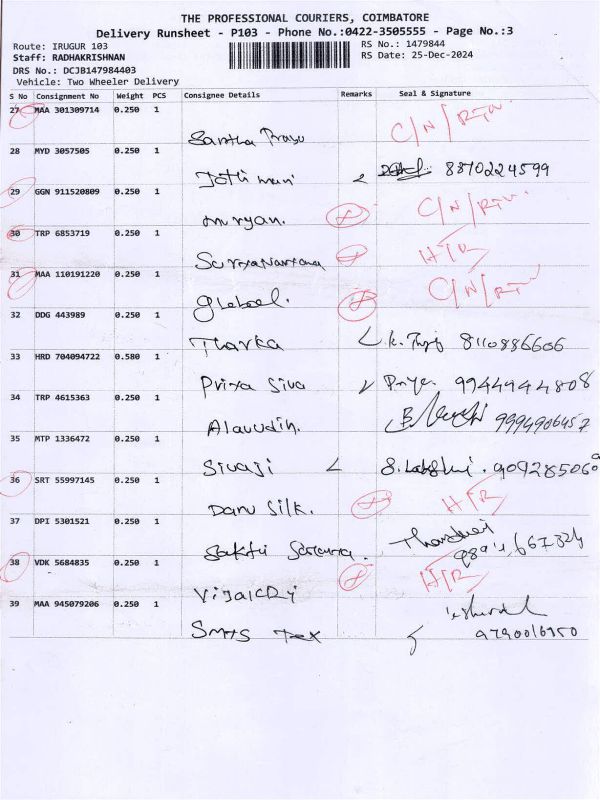 THE PROFESSIONAL COURIERS, COIMBATORE
Delivery Runsheet - P103 - Phone No.:0422-3505555 - Page No.:3
Route: IRUGUR 103 RS No.: 1479844
Staff: RADHAKRISHNAN RS Date: 25-Dec-2024
DRS No.: DCJB147984403
Vehicle: Two Wheeler Delivery
S No Consignment No Weight PCS Consignee Details Remarks Seal & Signature
27 MAA 301309714 0.250 1 C/N/RTN
Santha Prasu
28 MYD 3057505 0.250 1 8870224599
Jothi mani
29 GGN 911520809 0.250 1 C/N/RTN
muryan.
30 TRP 6853719 0.250 1 HTR
Suryanaryana
31 MAA 110191220 0.250 1 C/N/RTN
Glebeel.
32 DDG 443989 0.250 1
Tharka 8110886606
33 HRD 704094722 0.580 1
Priya Siva Priya 9944944808
34 TRP 4615363 0.250 1
Alavudin. 9994906457
35 MTP 1336472 0.250 1
Sivaji S. Lakshmi . 9092850609
36 SRT 55997145 0.250 1 HTR
Danu Silk.
37 DPI 5301521 0.250 1
Sakthi
38 VDK 5684835 0.250 1 HTR
39 MAA 945079206 0.250 1
SMTS Tex 9790016950